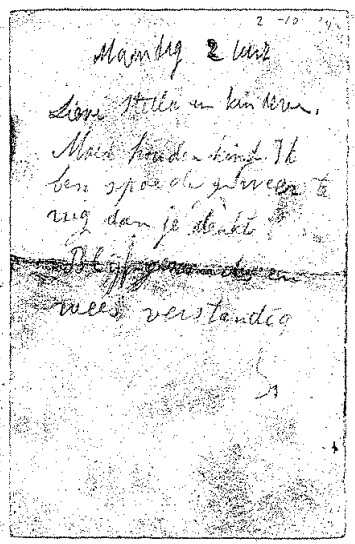 2-10
Maandag 2 uur
Lieve Stella en kinderen,
Moed houden kind. Ik
ben spoediger weer te
rug dan je denkt
Blijf gezond en
wees verstandig